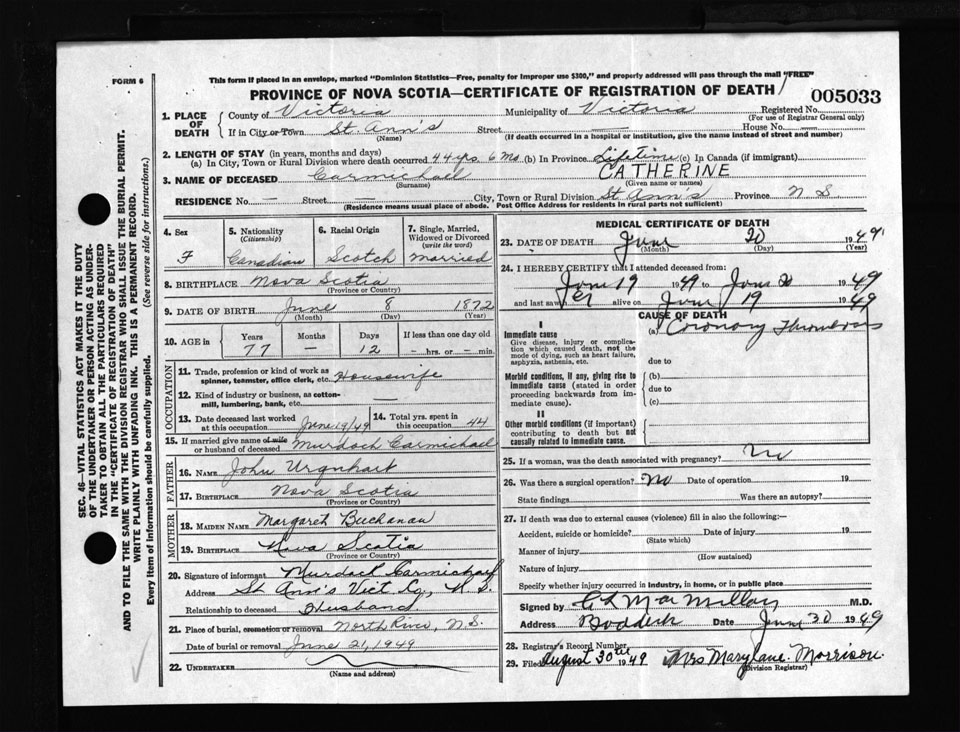 FORM 6
This form if placed in an envelope, marked "Dominion Statistics—Free, penalty for improper use $300," and properly addressed will pass through the mail "FREE"
PROVINCE OF NOVA SCOTIA—CERTIFICATE OF REGISTRATION OF DEATH
005033
1. PLACE OF DEATH { County of Victoria Municipality of Victoria Registered No.
(For use of Registrar General only)
If in City or Town St. Ann's Street — House No. —
(Name) (If death occurred in a hospital or institution, give the name instead of street and number)
2. LENGTH OF STAY (in years, months and days)
(a) In City, Town or Rural Division where death occurred 44 yrs. 6 Mo. (b) In Province Lifetime (c) In Canada (if immigrant)
3. NAME OF DECEASED Carmichael CATHERINE
(Surname) (Given name or names)
RESIDENCE No. — Street — City, Town or Rural Division St Ann's Province N S
(Residence means usual place of abode. Post Office Address for residents in rural parts not sufficient)
4. Sex F
5. Nationality (Citizenship) Canadian
6. Racial Origin Scotch
7. Single, Married, Widowed or Divorced (write the word) Married
8. BIRTHPLACE Nova Scotia
(Province or Country)
9. DATE OF BIRTH June 8 1872
(Month) (Day) (Year)
10. AGE in Years 77 Months — Days 12 If less than one day old — hrs. or — min.
OCCUPATION
11. Trade, profession or kind of work as spinner, teamster, office clerk, etc. Housewife
12. Kind of industry or business, as cotton-mill, lumbering, bank, etc. —
13. Date deceased last worked at this occupation June 19/49
14. Total yrs. spent in this occupation 44
15. If married give name of wife or husband of deceased Murdoch Carmichael
FATHER
16. NAME John Urquhart
17. BIRTHPLACE Nova Scotia
(Province or Country)
MOTHER
18. MAIDEN NAME Margaret Buchanan
19. BIRTHPLACE Nova Scotia
(Province or Country)
20. Signature of informant Murdoch Carmichael
Address St Ann's Vict. Co, N. S.
Relationship to deceased Husband
21. Place of burial, cremation or removal North River, N.S.
Date of burial or removal June 21, 1949
22. UNDERTAKER
(Name and address)
MEDICAL CERTIFICATE OF DEATH
23. DATE OF DEATH June 20 1949
(Month) (Day) (Year)
24. I HEREBY CERTIFY that I attended deceased from:
June 19 1949 to June 20 1949
and last saw er alive on June 19 1949
CAUSE OF DEATH
I
Immediate cause
Give disease, injury or complication which caused death, not the mode of dying, such as heart failure, asphyxia, asthenia, etc.
(a) Coronary Thrombosis
due to
Morbid conditions, if any, giving rise to immediate cause (stated in order proceeding backwards from immediate cause).
(b)
due to
(c)
II
Other morbid conditions (if important) contributing to death but not causally related to immediate cause.
25. If a woman, was the death associated with pregnancy? No
26. Was there a surgical operation? No Date of operation 19
State findings Was there an autopsy?
27. If death was due to external causes (violence) fill in also the following:—
Accident, suicide or homicide? Date of injury 19
(State which)
Manner of injury
(How sustained)
Nature of injury
Specify whether injury occurred in industry, in home, or in public place
Signed by C L MacMillan M.D.
Address Baddeck Date June 30 1949
28. Registrar's Record Number
29. Filed August 30th 1949 Mrs Mary Jane Morrison.
(Division Registrar)
SEC. 46—VITAL STATISTICS ACT MAKES IT THE DUTY
OF THE UNDERTAKER OR PERSON ACTING AS UNDER-
TAKER TO OBTAIN ALL THE PARTICULARS REQUIRED
IN THE "CERTIFICATE OF REGISTRATION OF DEATH"
AND TO FILE THE SAME WITH THE DIVISION REGISTRAR WHO SHALL ISSUE THE BURIAL PERMIT.
WRITE PLAINLY WITH UNFADING INK. THIS IS A PERMANENT RECORD.
Every item of information should be carefully supplied. (See reverse side for instructions.)